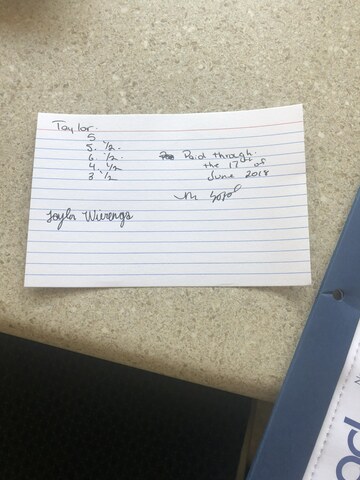 Taylor.
5
5. 1/2.
6. 1/2.
4. 1/2
3 1/2
Paid through.
the 17th of
June 2018
Taylor Wierenga